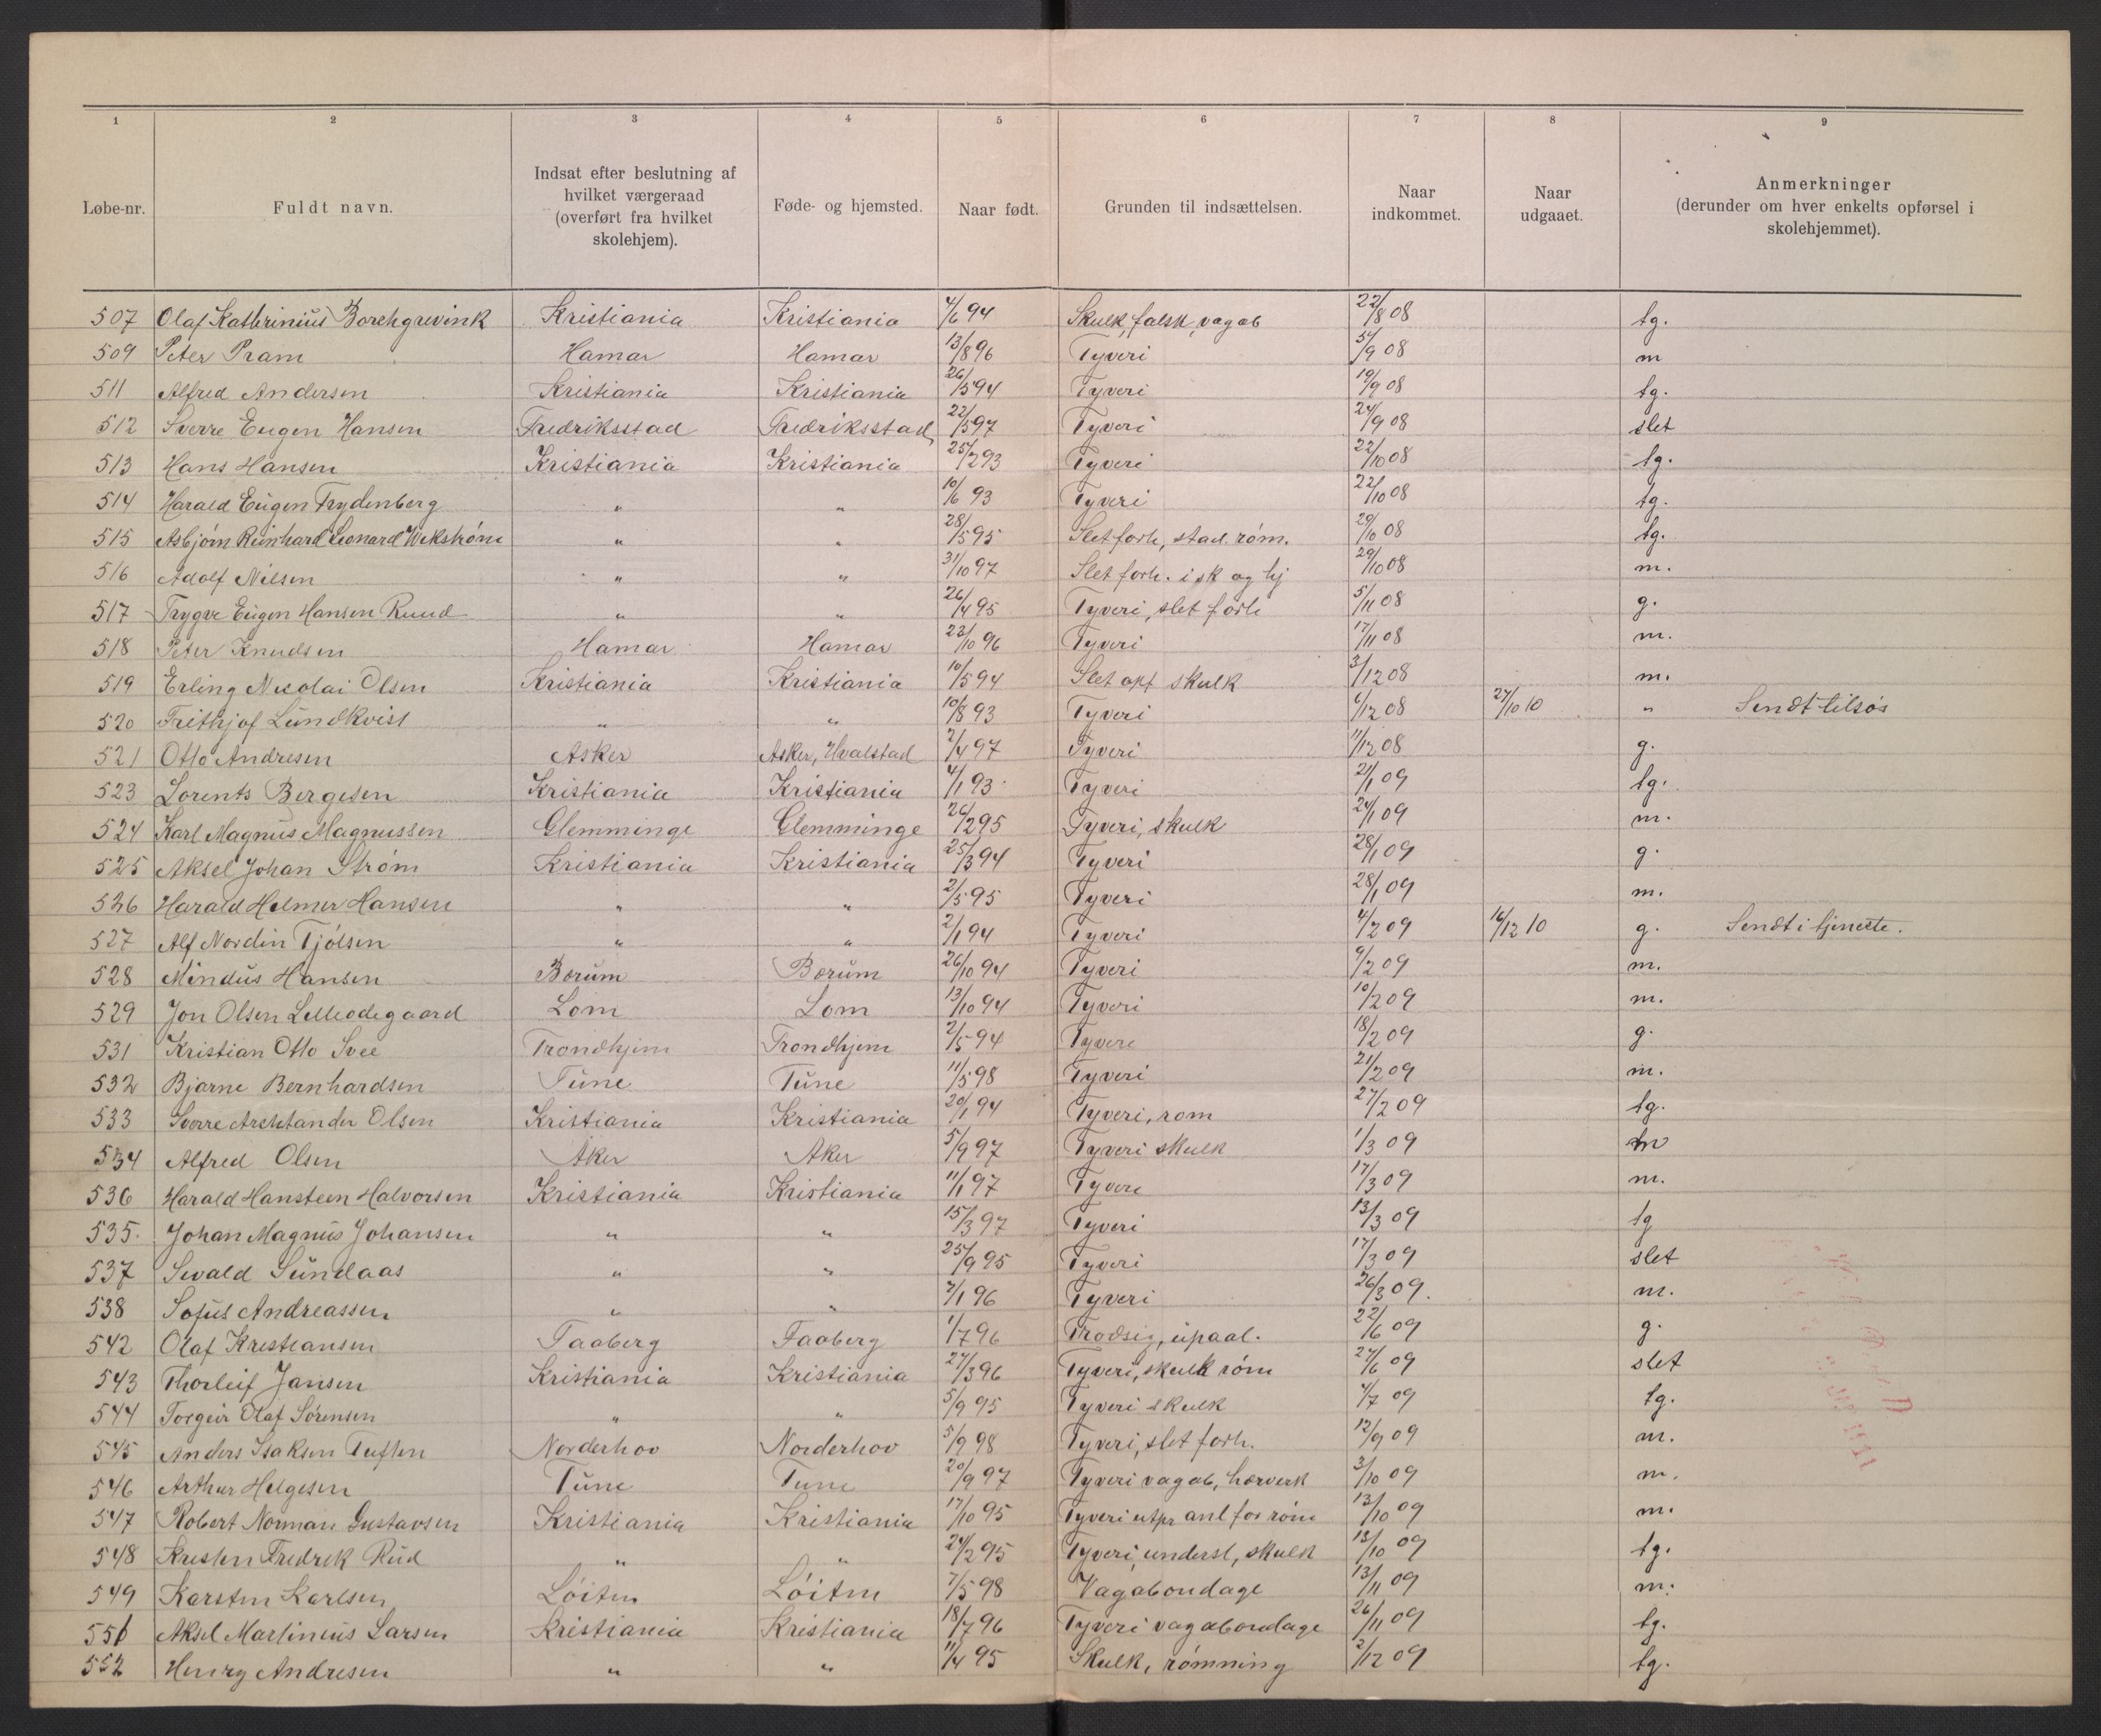 1 2 3 4 5 6 7 8 9
Løbe-nr. Fuldt navn. Indsat efter beslutning af hvilket værgeraad (overført fra hvilket skolehjem). Føde- og hjemsted. Naar født. Grunden til indsættelsen. Naar indkommet. Naar udgaaet. Anmerkninger (derunder om hver enkelts opførsel i skolehjemmet).
507 Olaf Kathrinius Borchgrevink Kristiania Kristiania 4/6 94 Skulk, falsk, vagab 22/8 08 tg.
509 Peter Pram Hamar Hamar 13/8 96 Tyveri 5/9 08 m
511 Alfred Andersen Kristiania Kristiania 26/5 94 Tyveri 19/9 08 tg.
512 Sverre Eugen Hansen Fredriksstad Fredriksstad 22/5 97 Tyveri 24/9 08 slet
513 Hans Hansen Kristiania Kristiania 25/2 93 Tyveri 22/10 08 tg.
514 Harald Eugen Frydenberg " " 10/6 93 Tyveri 22/10 08 tg.
515 Asbjörn Reinhard Leonard Wekström " " 28/5 95 Slet forh, stad. röm. 29/10 08 tg.
516 Adolf Nilsen " " 31/10 97 Slet forh. i sk og hj 29/10 08 m.
517 Trygve Eugen Hansen Ruud " " 26/4 95 Tyveri, slet forh 5/11 08 g.
518 Peter Knudsen Hamar Hamar 23/10 96 Tyveri 17/11 08 m.
519 Erling Nicolai Olsen Kristiania Kristiania 10/5 94 Slet opf skulk 3/12 08 m.
520 Frithjof Lundkvist " " 10/8 93 Tyveri 6/12 08 27/10 10 " Sendt tilsös
521 Otto Andresen Asker Asker, Hvalstad 2/4 97 Tyveri 11/12 08 g.
523 Lorents Bergesen Kristiania Kristiania 4/1 93 Tyveri 21/1 09 tg.
524 Karl Magnus Magnussen Glemminge Glemminge 26/2 95 Tyveri, skulk 24/1 09 m.
525 Aksel Johan Ström Kristiania Kristiania 25/3 94 Tyveri 28/1 09 g.
526 Harald Helmer Hansen " " 2/5 95 Tyveri 28/1 09 m.
527 Alf Nordin Tjölsen " " 2/1 94 Tyveri 4/2 09 16/12 10 g. Sendt i tjeneste.
528 Mindus Hansen Bærum Bærum 26/10 94 Tyveri 9/2 09 m.
529 Jon Olsen Lilleödegaard Lom Lom 13/10 94 Tyveri 10/2 09 m.
531 Kristian Otto Svee Trondhjem Trondhjem 2/5 94 Tyveri 18/2 09 g.
532 Bjarne Bernhardsen Tune Tune 11/5 98 Tyveri 21/2 09 m.
533 Sverre Olsen Kristiania Kristiania 20/1 94 Tyveri, röm 27/2 09 tg.
534 Alfred Olsen Aker Aker 5/9 97 Tyveri skulk 1/3 09 m
536 Harald Hansteen Halvorsen Kristiania Kristiania 11/1 97 Tyveri 17/3 09 m.
535. Johan Magnus Johansen " " 15/3 97 Tyveri 13/3 09 tg
537 Sevald Sundaas " " 25/9 95 Tyveri 17/3 09 slet
538 Sofus Andreassen " " 2/1 96 Tyveri 26/3 09. m.
542 Olaf Kristiansen Faaberg Faaberg 1/7 96 Trodsig, upaal. 22/6 09 g.
543 Thorleif Jansen Kristiania Kristiania 27/3 96 Tyveri, skulk röm 27/6 09 slet
544 Torgeir Olaf Sörensen " " 5/9 95 Tyveri skulk 4/7 09 tg.
545 Anders Isaksen Tuften Norderhov Norderhov 5/9 98 Tyveri, slet forh. 12/9 09 m.
546 Arthur Helgesen Tune Tune 20/9 97 Tyveri vagab, hærverk 3/10 09 m.
547 Robert Norman Gustavsen Kristiania Kristiania 17/10 95 Tyveri utpr anl for röm 13/10 09 m.
548 Kristen Fredrek Rud " " 24/2 95 Tyveri, underst, skulk 13/10 09 tg.
549 Karsten Karlsen Löiten Löiten 7/5 98 Vagabondage 13/11 09 m.
551 Aksel Martinius Larsen Kristiania Kristiania 18/7 96 Tyveri vagabondage 26/11 09 tg.
552 Henry Andresen " " 11/4 95 Skulk, römning 2/12 09 tg.